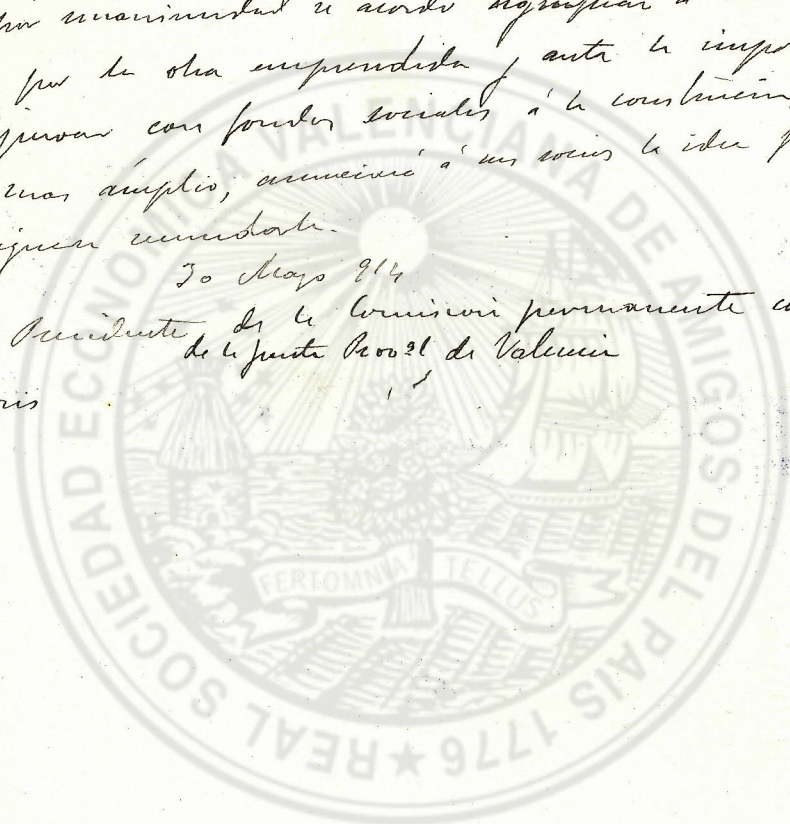 por unanimidad se acordó
por la obra emprendida y ante la
con fondos sociales á la
mas ámplio, á sus socios la idea
secundarla.
30 Mayo 914
Presidente de la Comision permanente
de la Junta Provâl de Valencia
REAL SOCIEDAD ECONOMICA VALENCIANA DE AMIGOS DEL PAIS 1776 ★
FERT OMNIA TELLUS